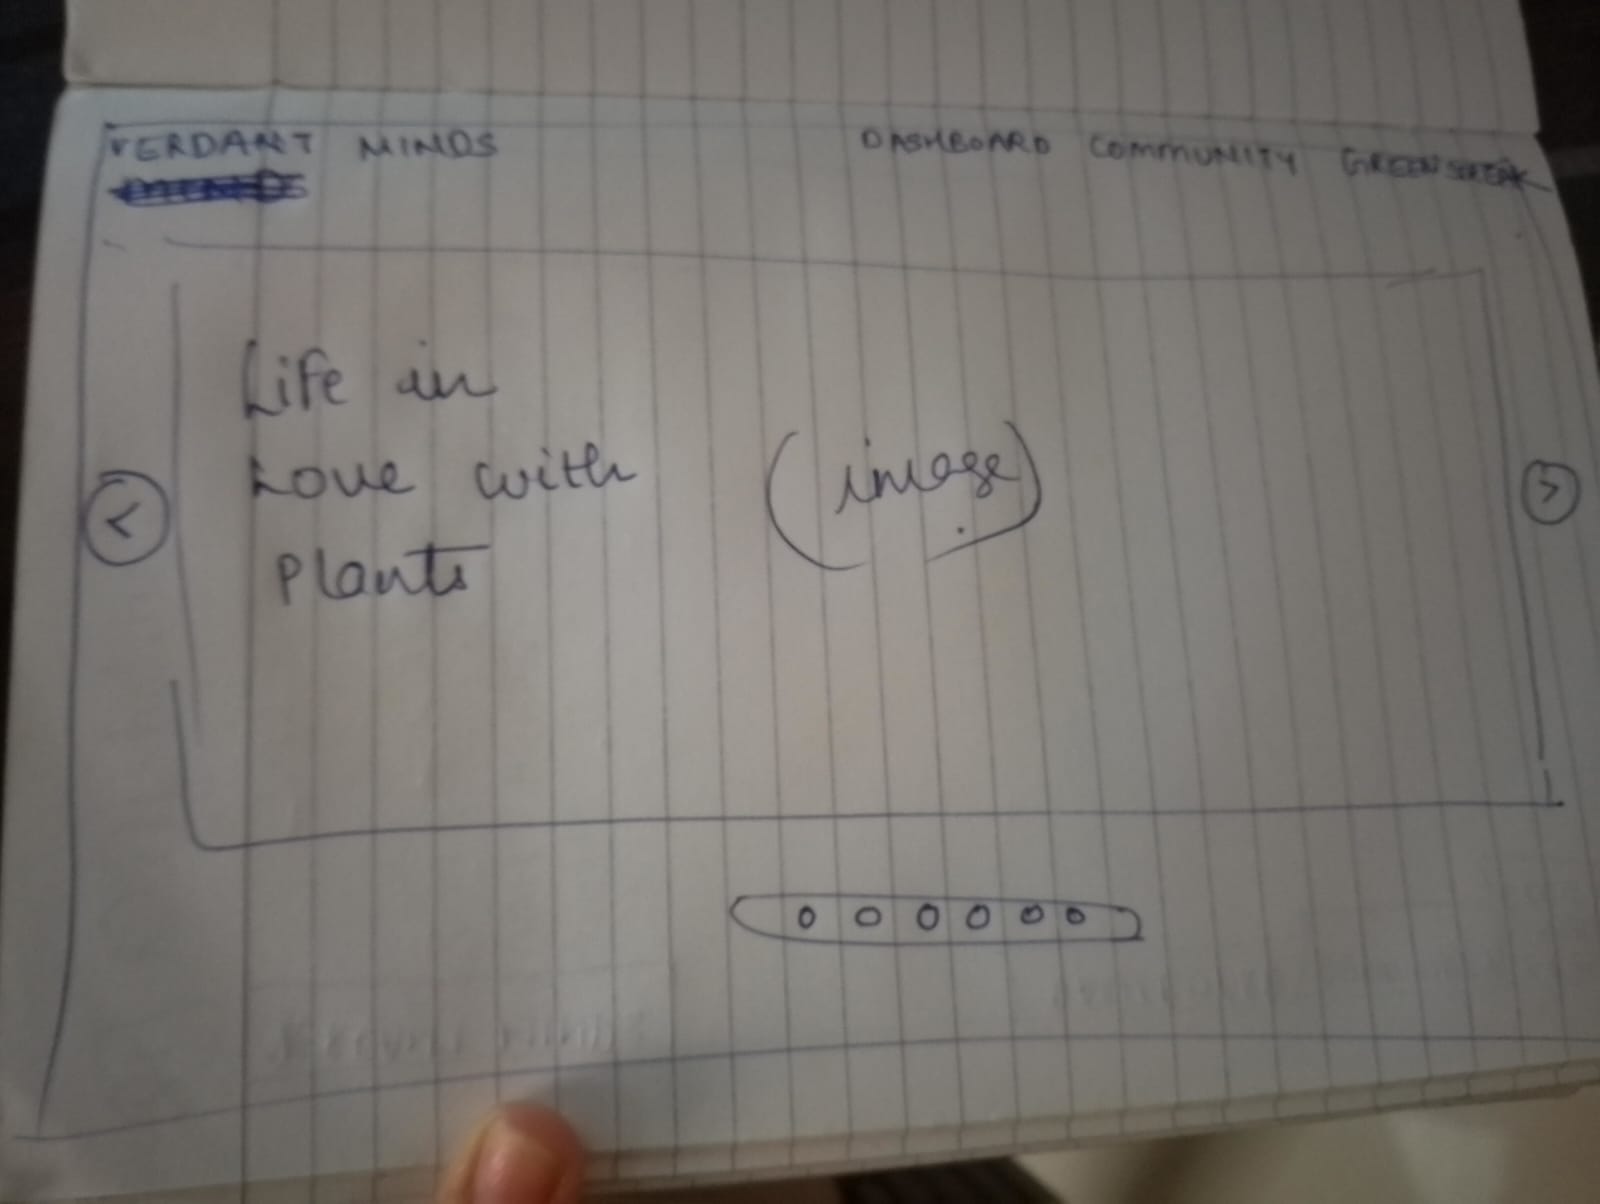 VERDANT MINDS
DASHBOARD COMMUNITY GREENSTREAK
Life in
Love with
Plants
(image)
<
>